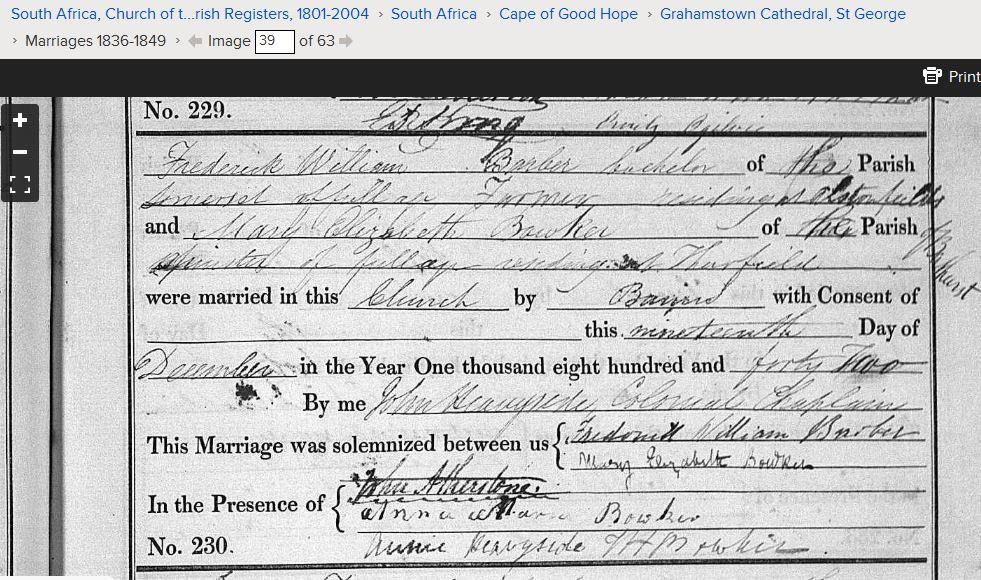 South Africa, Church of t...rish Registers, 1801-2004 › South Africa › Cape of Good Hope › Grahamstown Cathedral, St George
› Marriages 1836-1849 › Image 39 of 63
Print
No. 229.
Emily Ogilvie
Frederick William Barber bachelor of this Parish
Somerset residing at
and Mary Elizabeth Bowker of this Parish
Spinster of residing at Tharfield Bathurst
were married in this Church by Banns with Consent of
this nineteenth Day of
December in the Year One thousand eight hundred and forty Two
By me John Heavyside Colonial Chaplain
This Marriage was solemnized between us { Frederick William Barber
Mary Elizabeth Bowker
In the Presence of { John Atherstone.
Anna Maria Bowker
No. 230. Annie Heavyside T H Bowker.